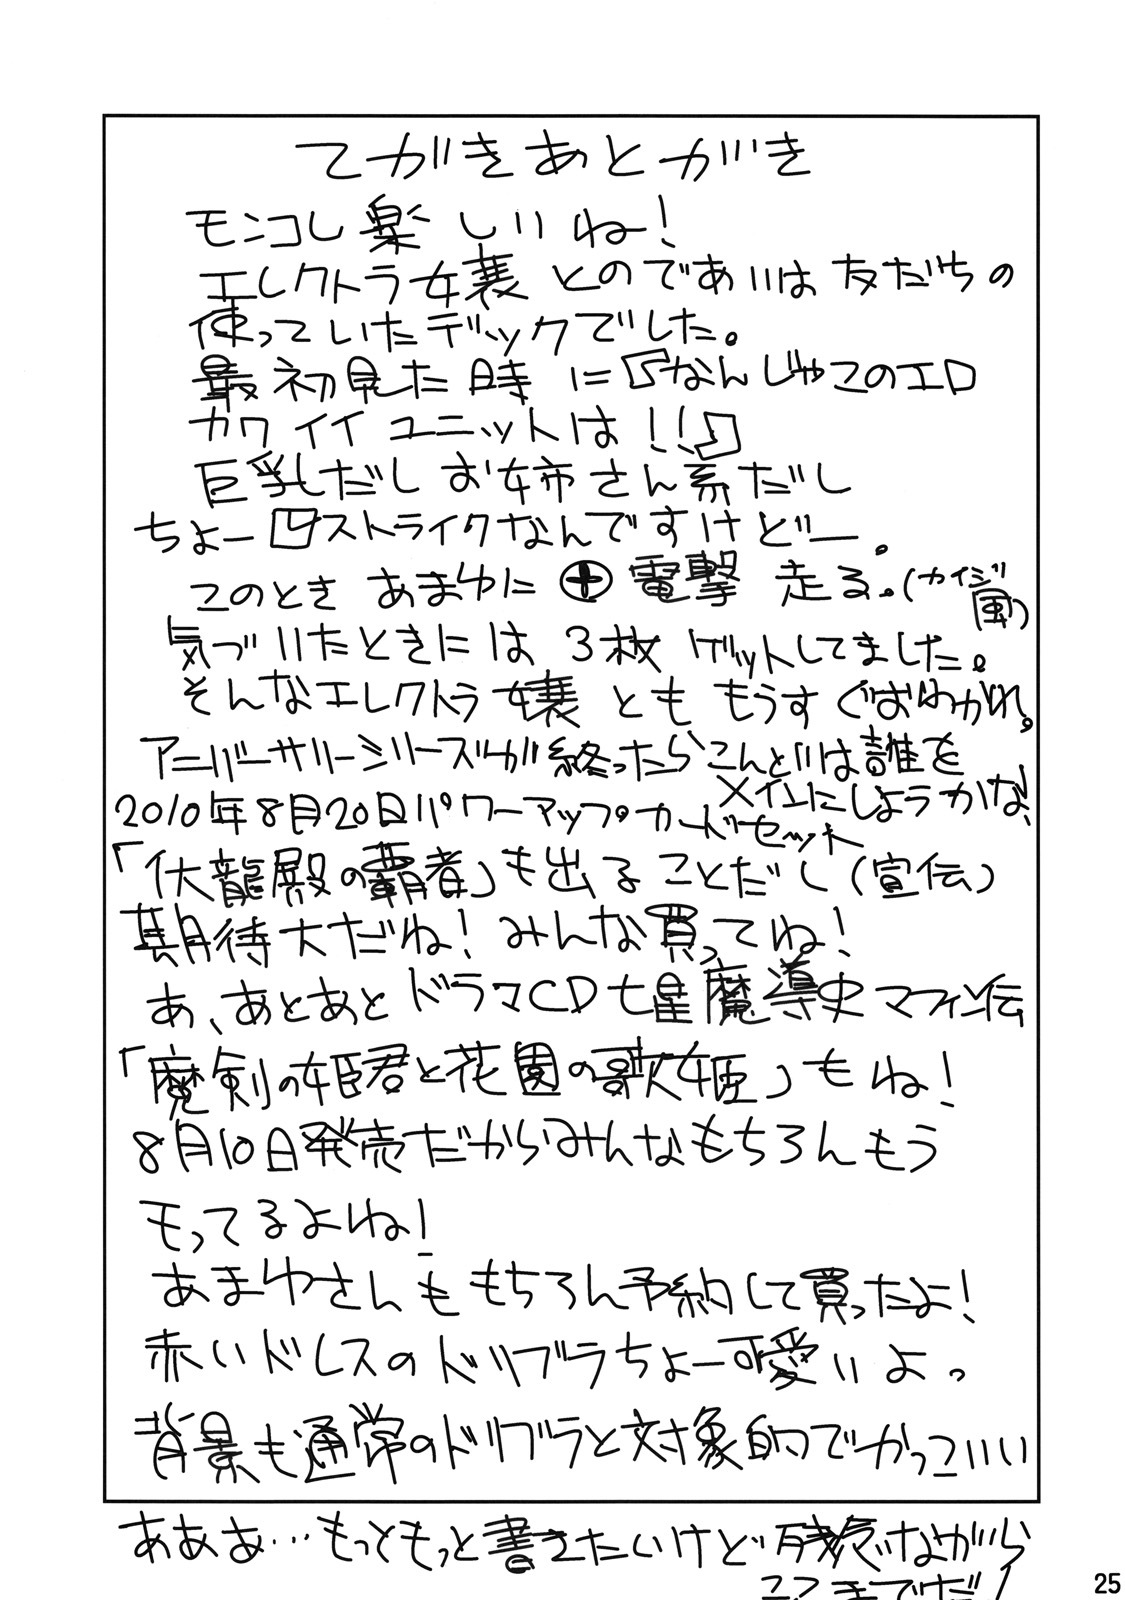 てがきあとがき
モンコレ楽しいね！
エレクトラ嬢とのであいは友だちの
使っていたデックでした。
最初見た時に『なんじゃこのエロ
カワイイユニットは！！』
巨乳だしお姉さん系だし
ちょーストライクなんですけどー。
このときあまゆに電撃走る。(カイジ風)
気づいたときには3枚ゲットしてました。
そんなエレクトラ嬢とももうすぐおわかれ。
アニバーサリーシリーズが終ったらこんどは誰を
メインにしようかな！
2010年8月20日パワーアップカードセット
「伏龍殿の覇者」も出ることだし(宣伝)
期待大だね！みんな買ってね！
あ、あとあとドラマCD七星魔導史マフィン伝
「魔剣の姫君と花園の歌姫」もね！
8月10日発売だからみんなもちろんもう
モってるよね！
あまゆさんももちろん予約して買ったよ！
赤いドレスのドリブラちょー可愛いよっ
背景も通常のドリブラと対象的でかっこいい
あああ…もっともっと書きたいけど残念ながら
ここまでだ！
25